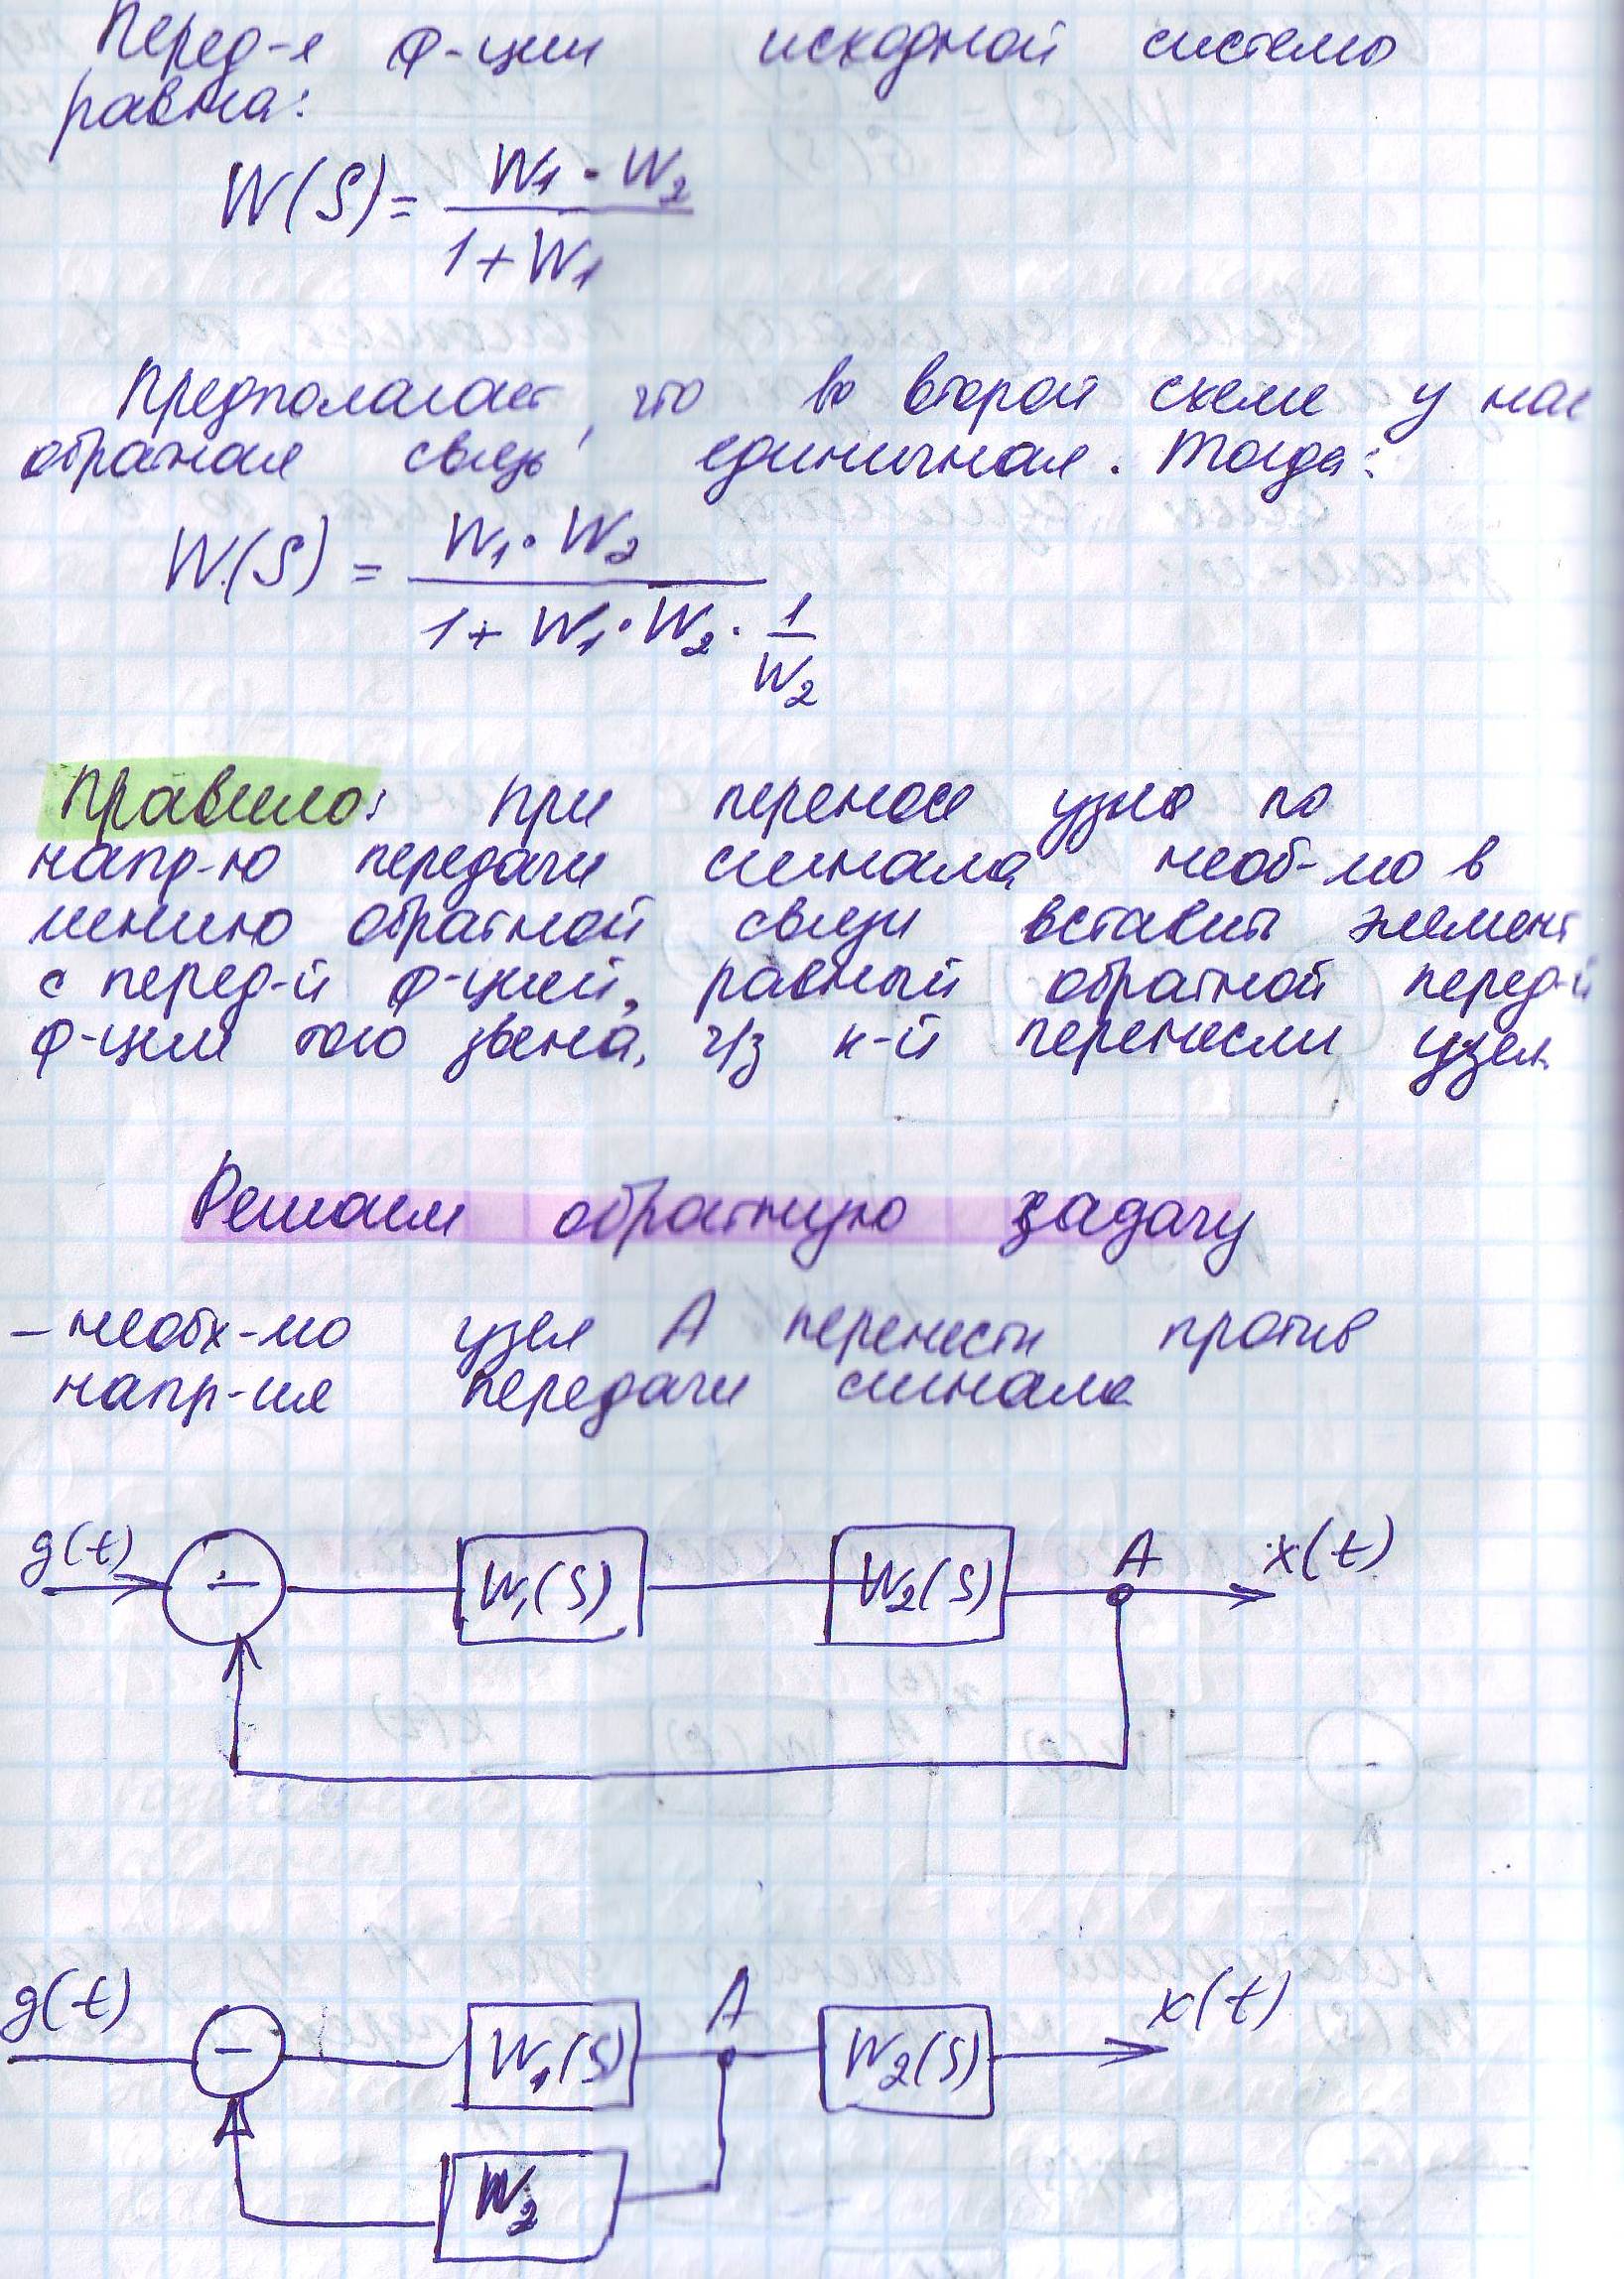 Перед-я ф-ции исходной системы
равна:
W(S) = W1 · W2 / 1 + W1
Предполагает, что во второй схеме у нас
обратная связь единичная. Тогда:
W(S) = W1 · W2 / 1 + W1 · W2 · 1 / W2
Правило: при переносе узла по
напр-ю передачи сигнала необ-мо в
линию обратной связи вставить элемент
с перед-й ф-цией, равный обратной перед-й
ф-ции того звена, ч/з к-й перенесли узел.
Решаем обратную задачу
– необх-мо узел А перенести против
напр-ия передачи сигнала
g(t) – W1(S) W2(S) A x(t)
g(t) – W1(S) A W2(S) x(t)
W2